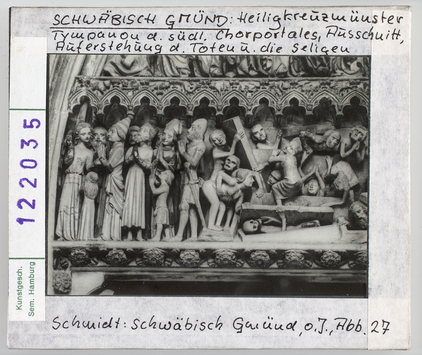 SCHWÄBISCH GMÜND: Heiligkreuzmünster
Tympanon d. südl. Chorportales, Ausschnitt,
Auferstehung d. Toten u. die Seligen
122035
Kunstgesch.
Sem. Hamburg
Schmidt: Schwäbisch Gmünd, o.J., Abb. 27